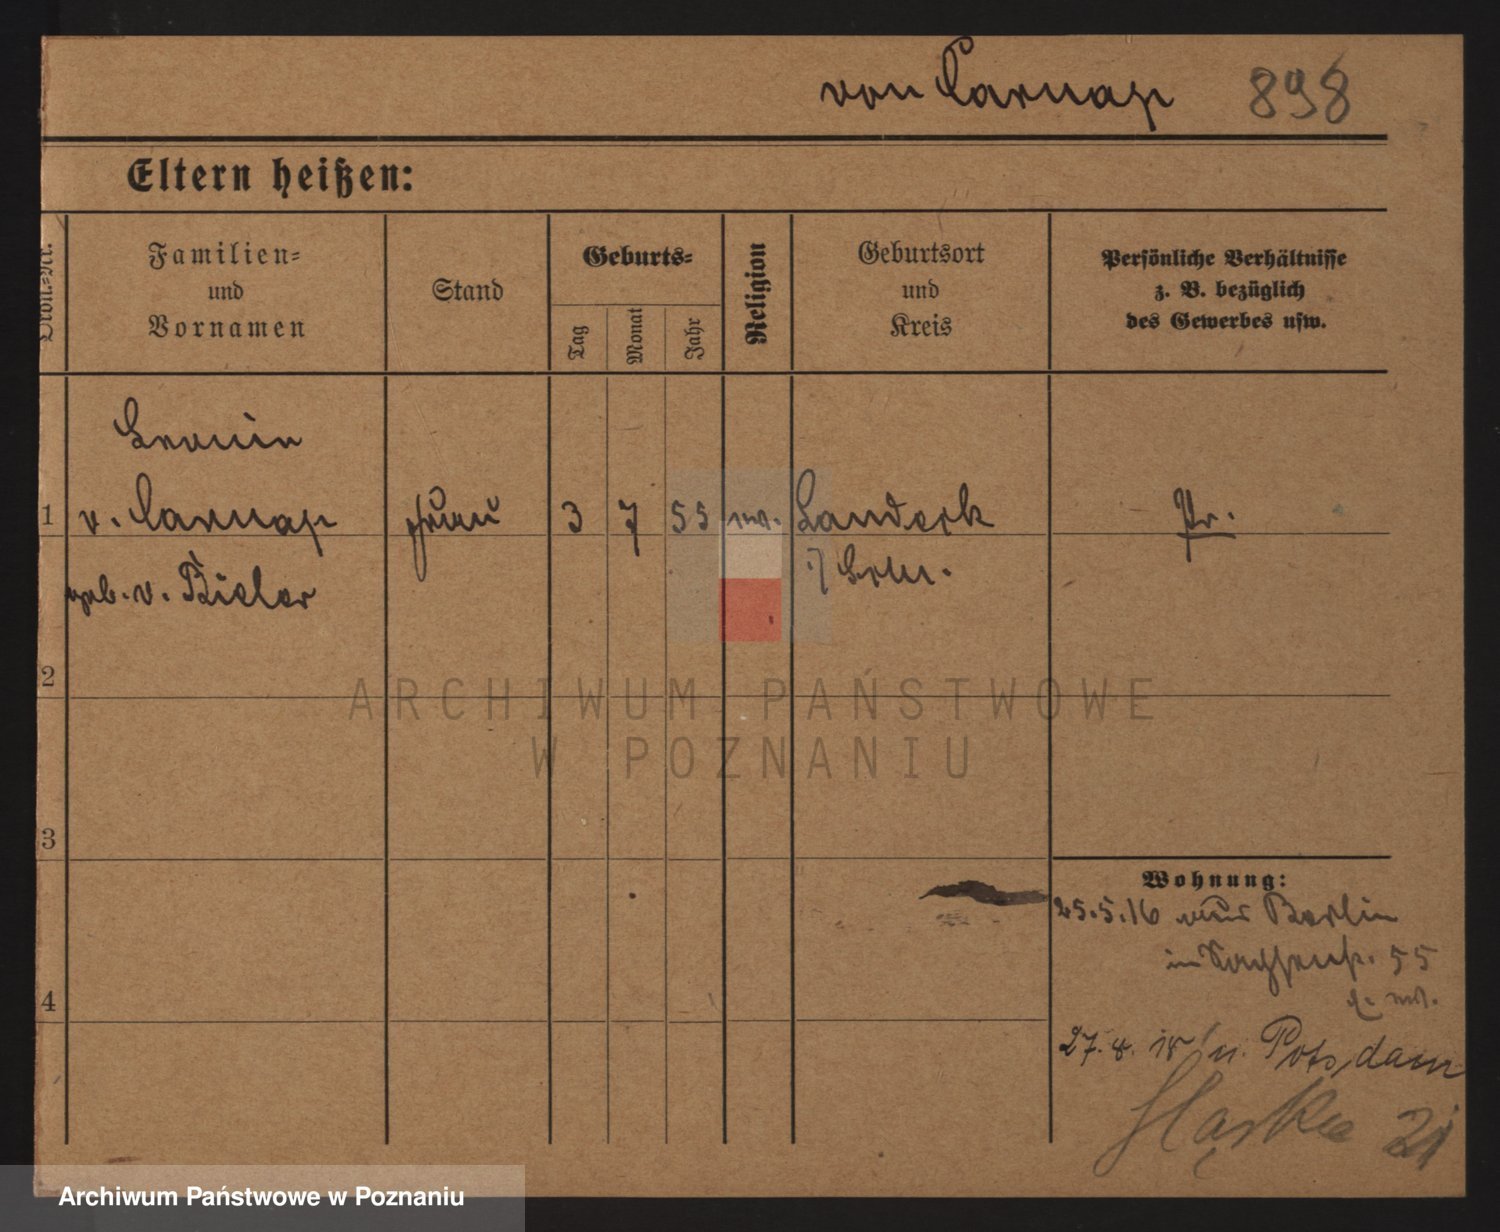 von Carnap 898
Eltern heißen:
Ordn.-Nr.
Familien-
und
Vornamen
Stand
Geburts-
Tag
Monat
Jahr
Religion
Geburtsort
und
Kreis
Persönliche Verhältnisse
z. B. bezüglich
des Gewerbes usw.
1
v. Carnap
Frau
3 7 53
Landeck
Pr.
geb. v. Bieler
2
3
4
Wohnung:
25.5.16 aus Berlin
55
27. 8. 18 n. Potsdam
Śląska 21
ARCHIWUM PAŃSTWOWE
W POZNANIU
Archiwum Państwowe w Poznaniu